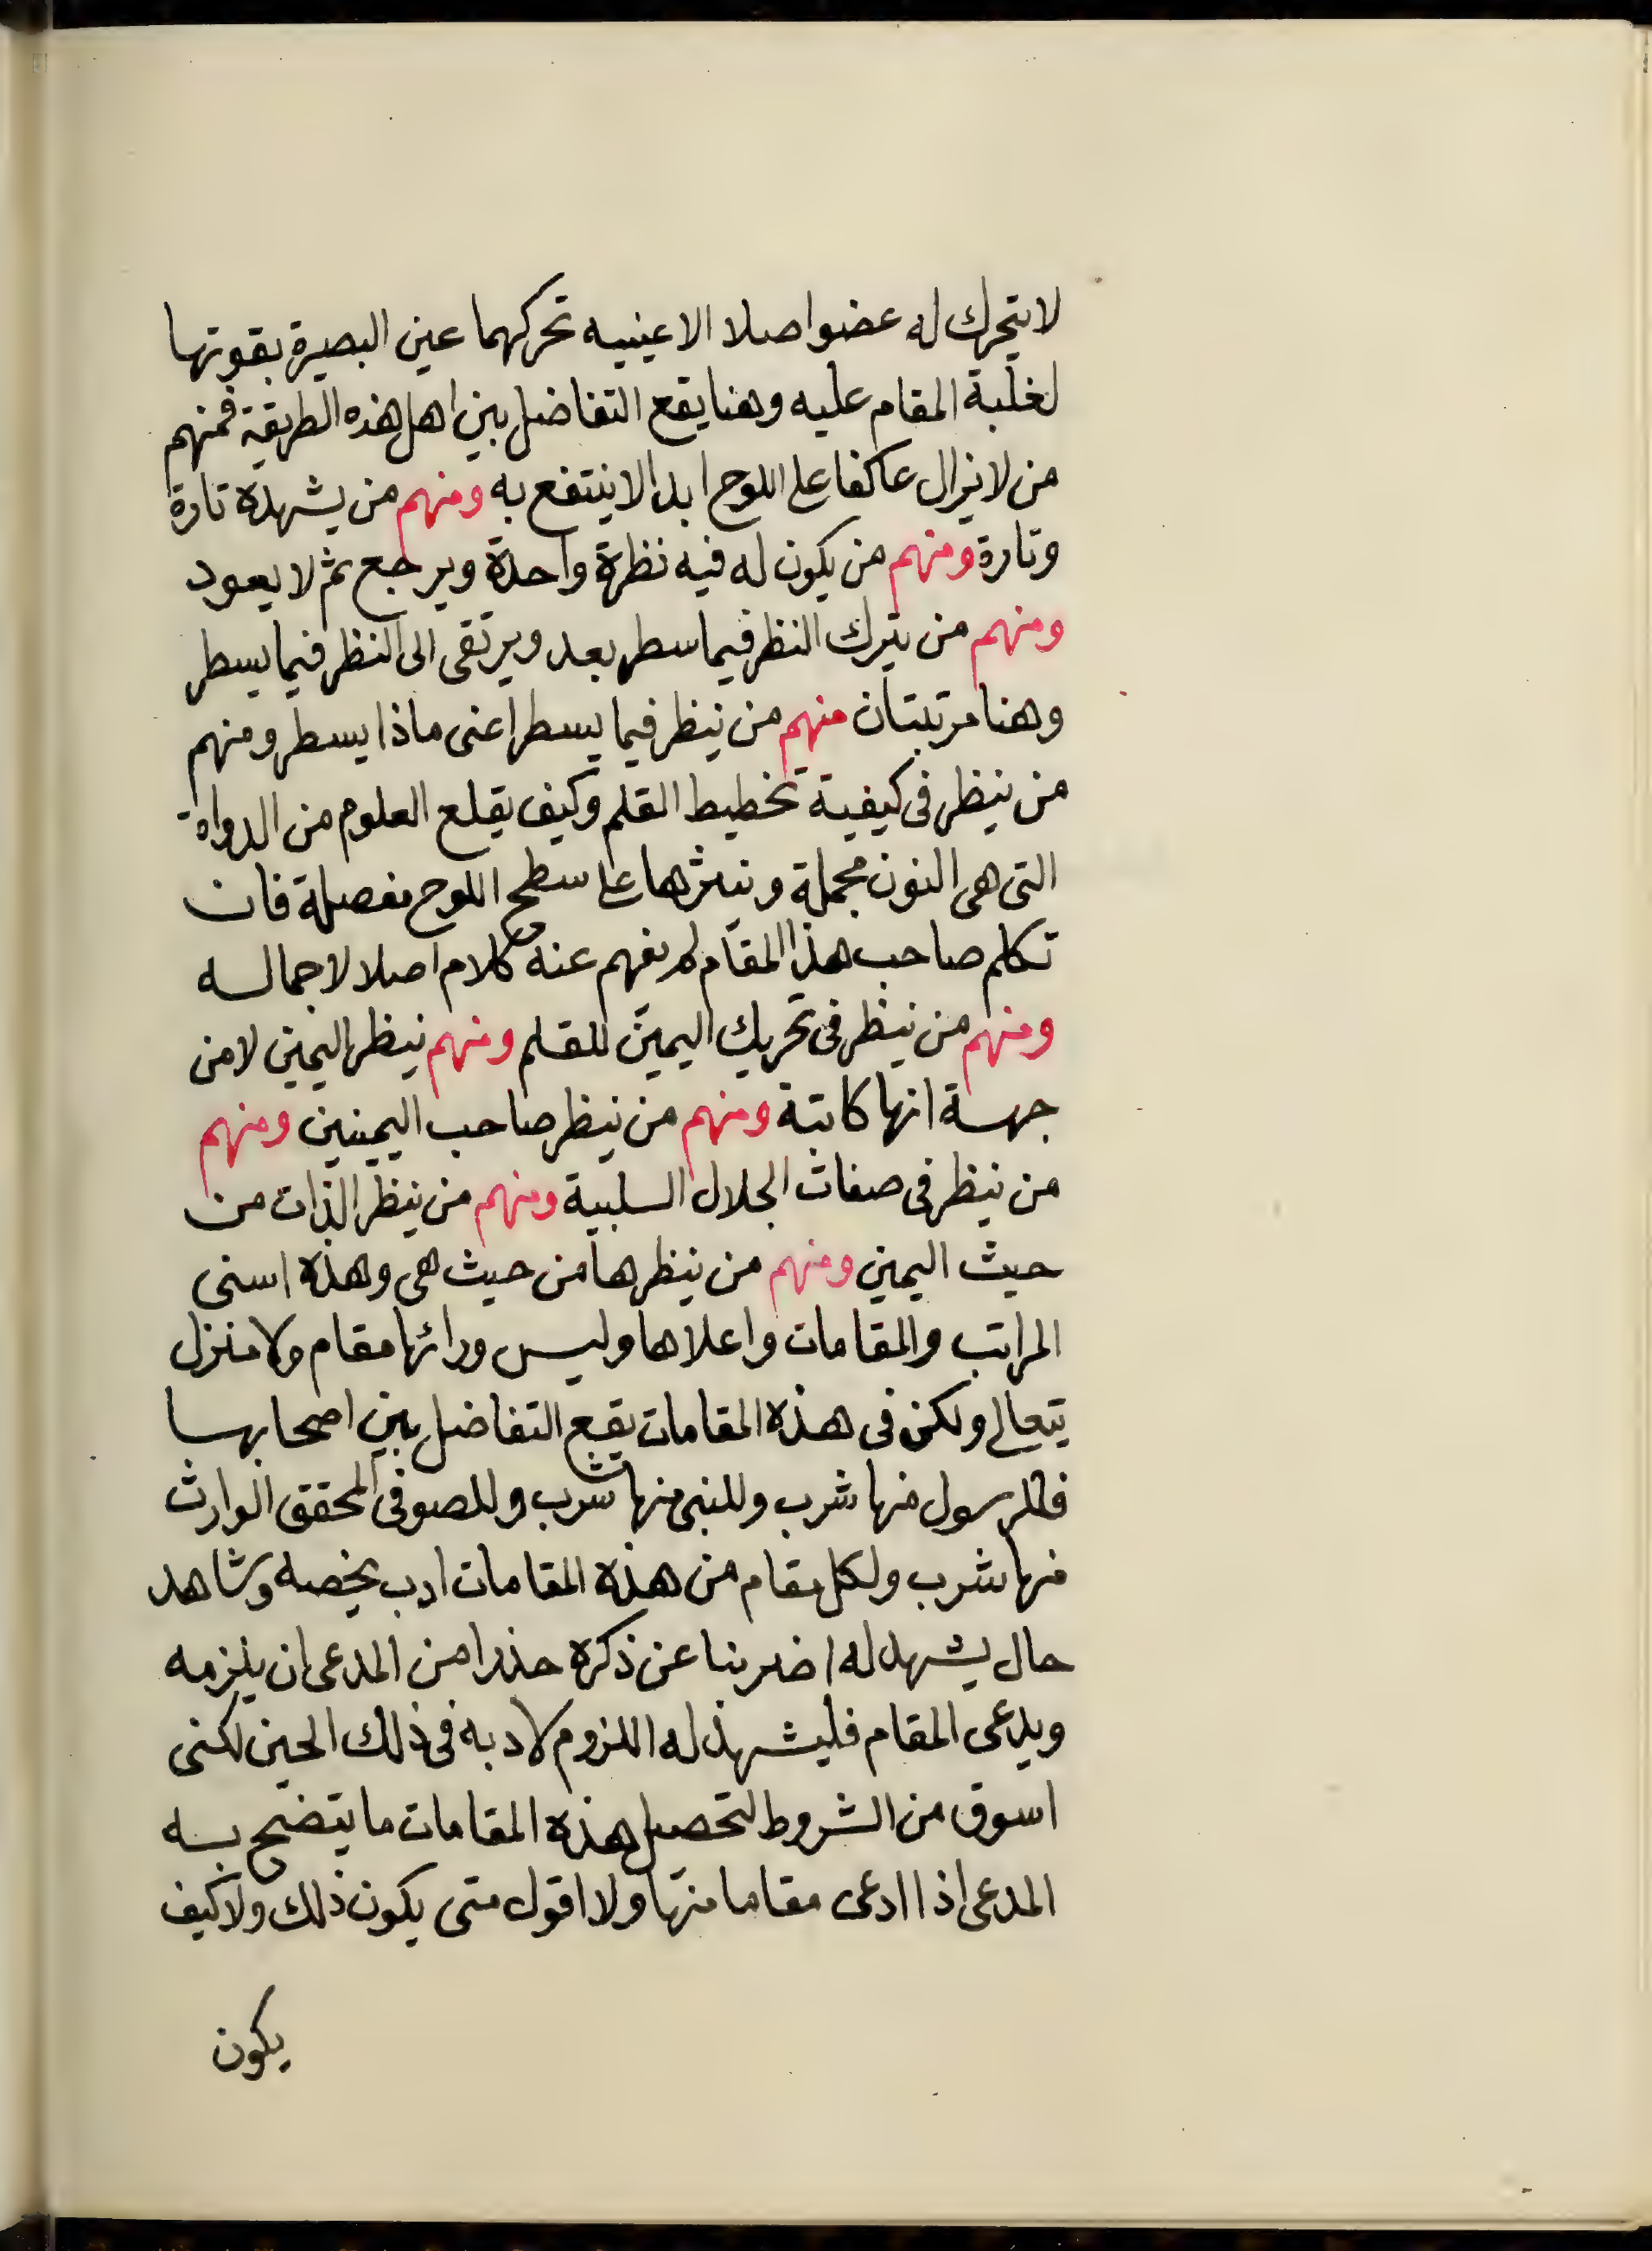 لا يتحرك له عضو اصلا الا عينيه تحركهما عين البصيرة بقوتها
لغلبة المقام عليه وهنا يقع التفاضل بين اهل هذه الطريقة فمنهم
من لا يزال عاكفا على اللوح ابدا لا ينتفع به ومنهم من يشهده تارة
وتارة ومنهم من يكون له فيه نظرة واحدة ويرجع ثم لا يعود
ومنهم من يترك النظر فيما سطر بعد ويرتقى الى النظر فيما يسطر
وهنا مرتبتان منهم من ينظر فيما يسطر اعنى ماذا يسطر ومنهم
من ينظر فى كيفية تخطيط القلم وكيف يقلع العلوم من الدواة
التى هى النون مجملة وينثرها على سطح اللوح مفصلة فان
تكلم صاحب هذا المقام لم يفهم عنه كلام اصلا لاجماله
ومنهم من ينظر فى تحريك اليمين للقلم ومنهم ينظر اليمين لا من
جهة انها كاتبة ومنهم من ينظر صاحب اليمينين ومنهم
من ينظر فى صفات الجلال السلبية ومنهم من ينظر الذات من
حيث اليمين ومنهم من ينظرها من حيث هى وهذه اسنى
المراتب والمقامات واعلاها وليس ورائها مقام ولا منزل
يتعالى ولكن فى هذه المقامات يقع التفاضل بين اصحابها
فللرسول منها شرب وللنبى منها شرب وللصوفى المحقق الوارث
منها شرب ولكل مقام من هذه المقامات ادب يخصه وشاهد
حال يشهد له اضربنا عن ذكره حذرا من المدعى ان يلزمه
ويدعى المقام فليشهد له اللزوم لادبه فى ذلك الحين لكنى
اسوق من الشروط لتحصيل هذه المقامات ما يتضح به
المدعى اذا ادعى مقاما منها ولا اقول متى يكون ذلك ولا كيف
يكون